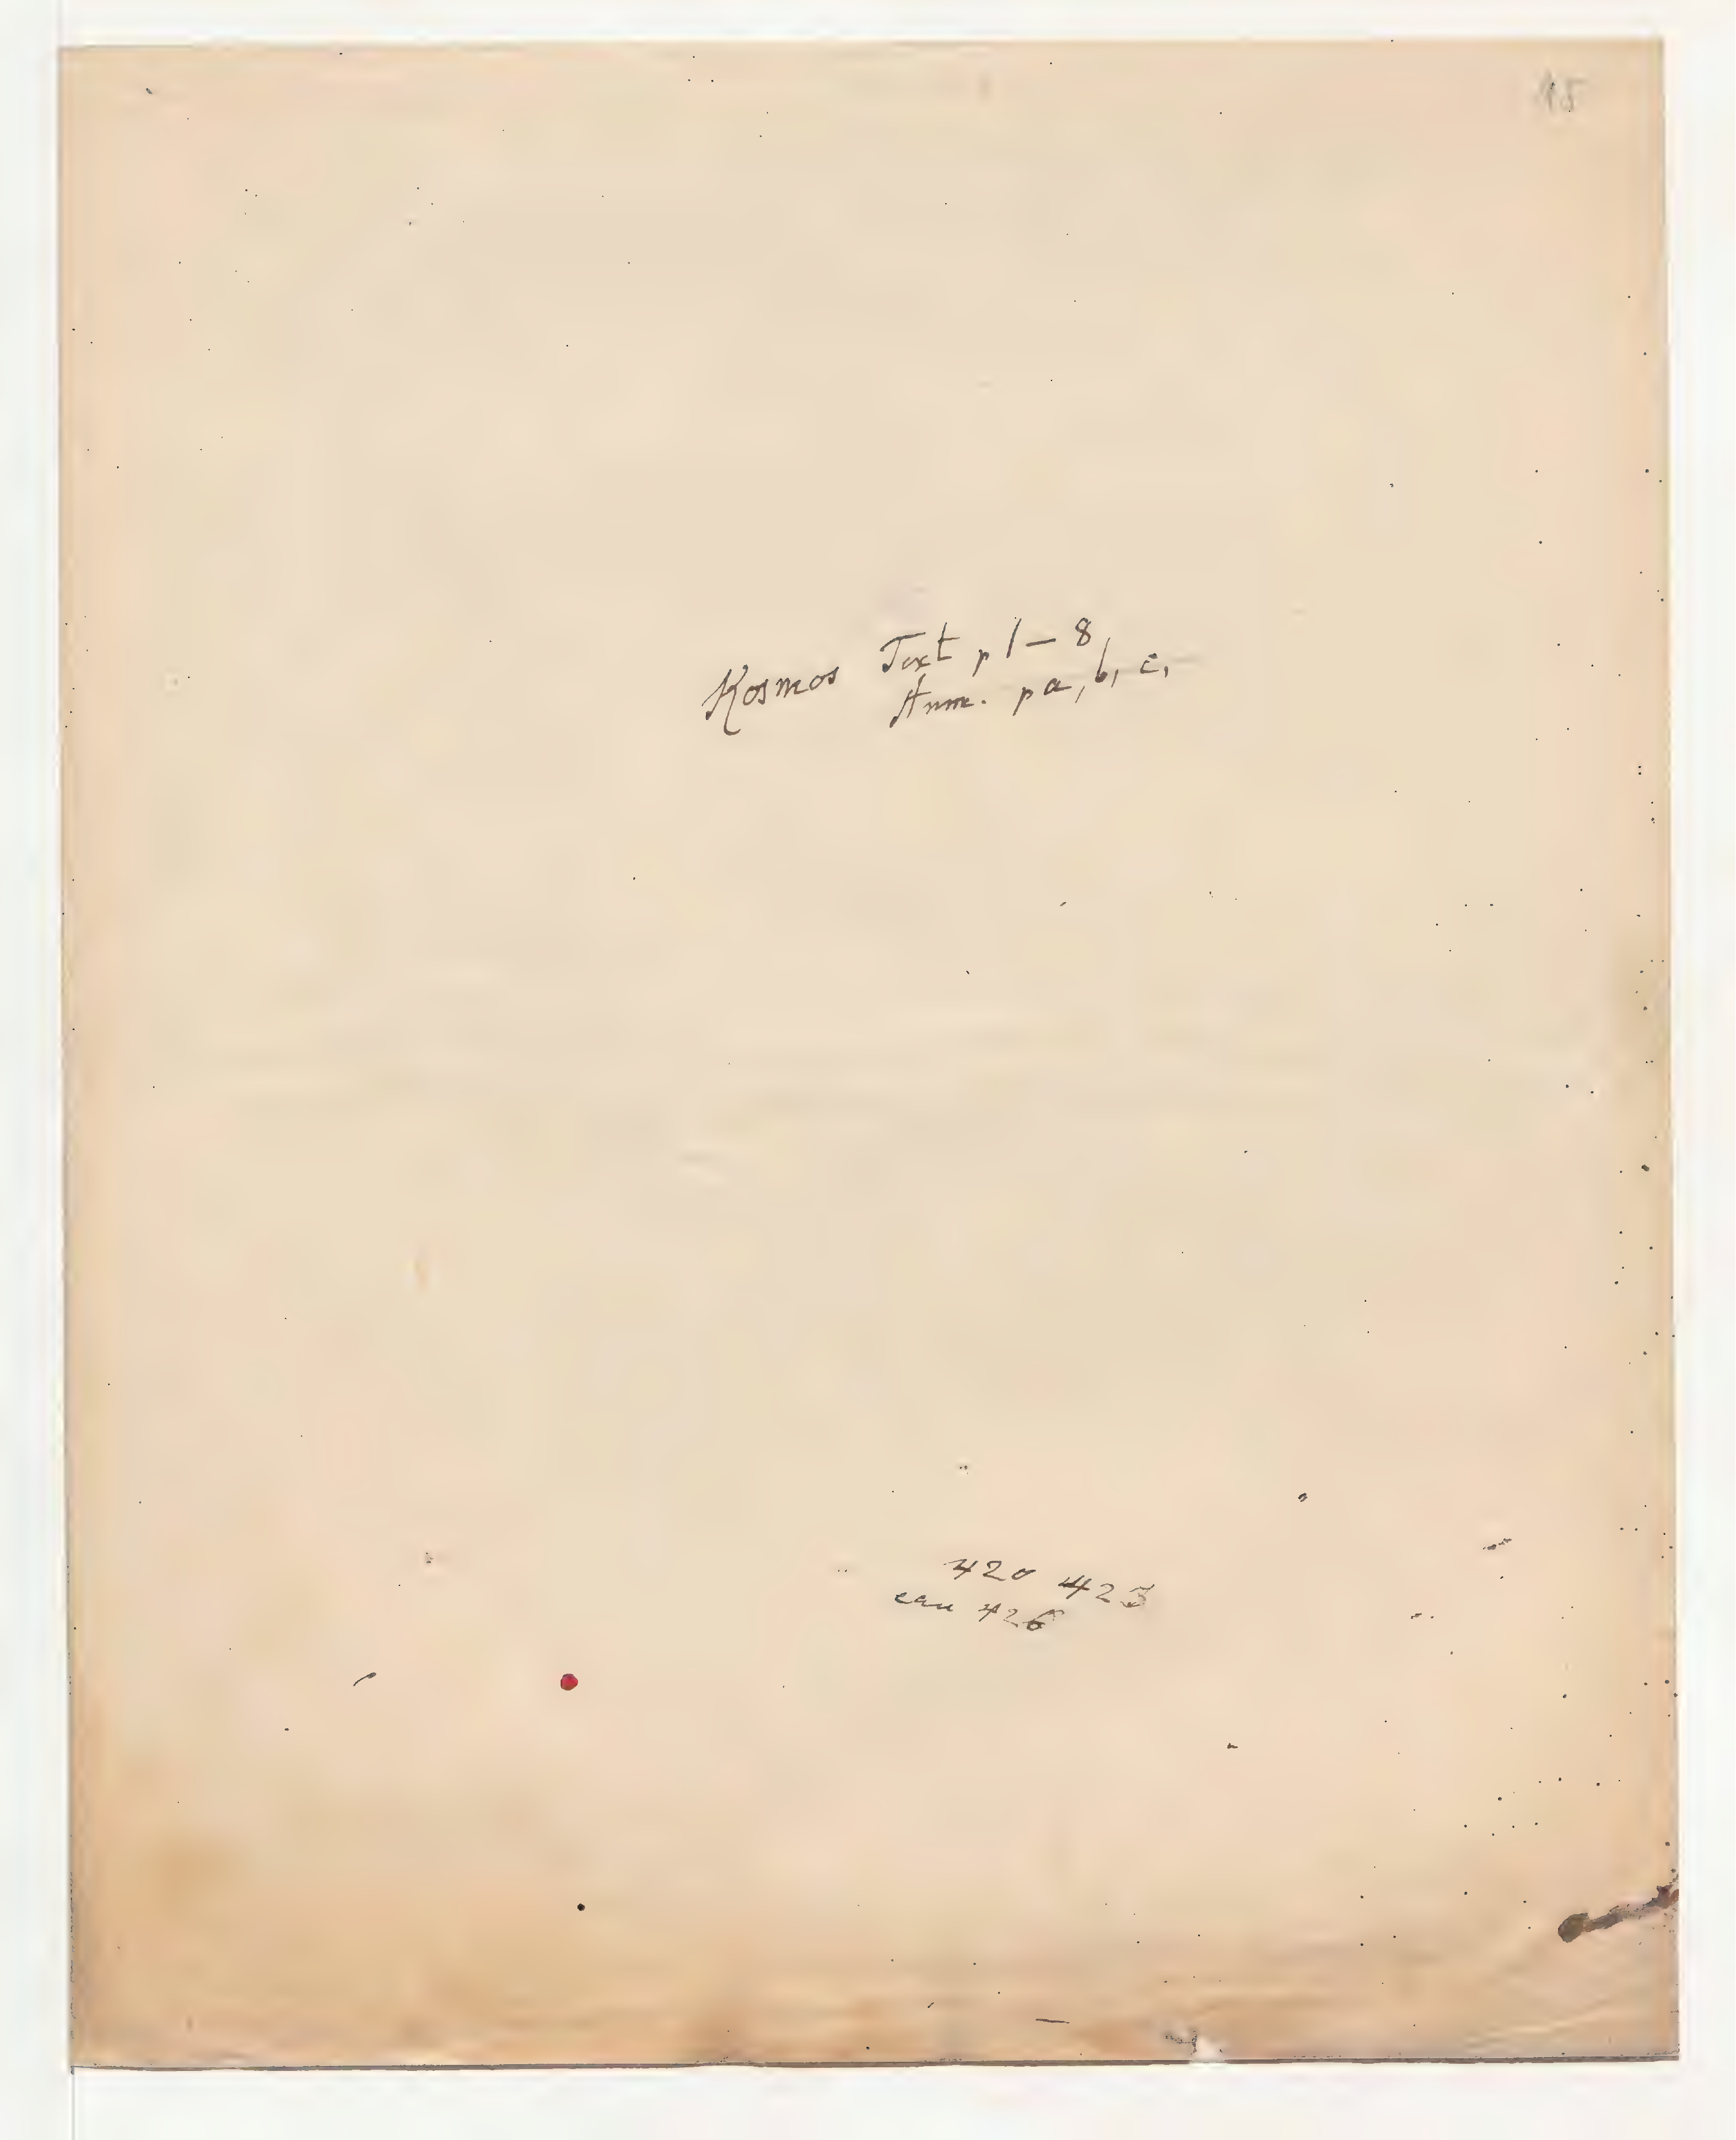 15
Kosmos Text p 1 – 8
Anm. p a, b, c,
420 423
eau 426